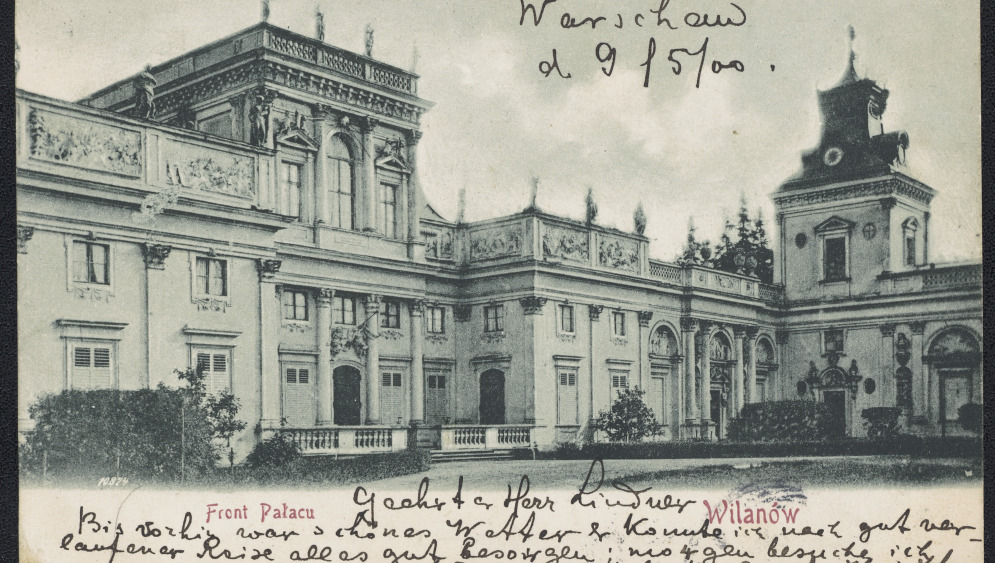 Warschau
d 9/5/00.
10874
Geehrter Herr Lindner
Front Pałacu
Wilanów
Bis vorhin war schönes Wetter & konnte ich nach gut ver-
laufener Reise alles gut besorgen; morgen besuche ich